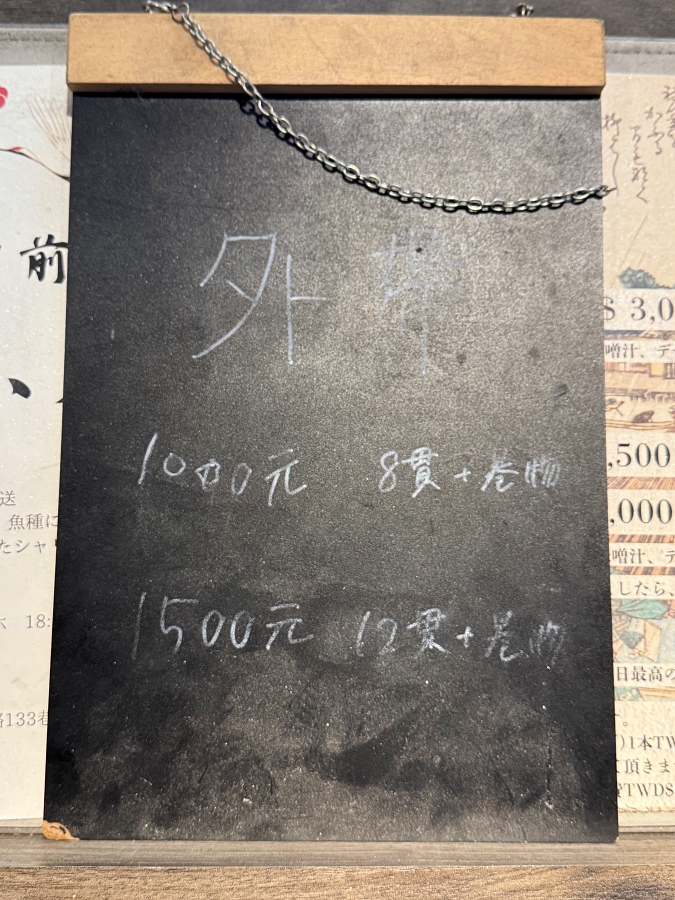 外帶
1000元 8貫+巻物
1500元 12貫+巻物
前
送
魚種に
たシャリ
18:
路133巷
$ 3,0
噌汁、デ
,500
,000
噌汁、デ
したら、
日最高の
。
)1本TW
て頂きま
TWD$